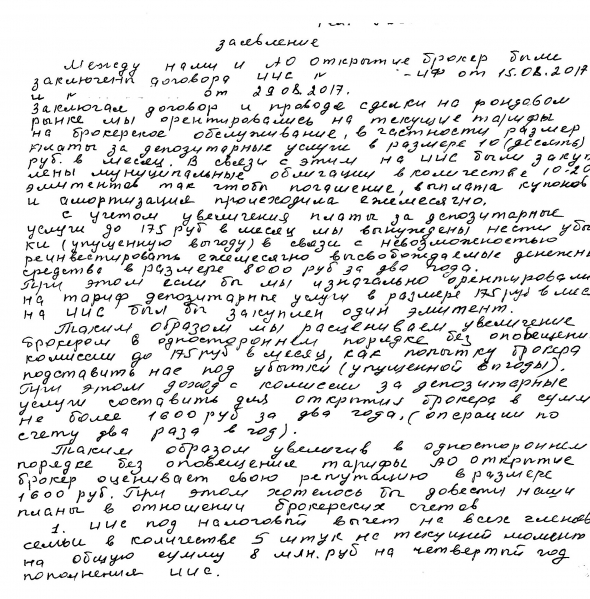 заявление
Между нами и АО открытие брокер были
заключены договора ИИС № -ИФ от 15.08.2017
и № от 29.08.2017.
Заключая договор и проводя сделки на фондовом
рынке мы орентировались на текущие тарифы
на брокерское обслуживание, в частности размер
платы за депозитарные услуги в размере 10 (десять)
руб. в месяц. В связи с этим на ИИС были закуп
лены муниципальные облигации в количестве 10-20
эмитентов так чтобы погашение, выплата купонов
и амортизация происходила ежемесячно.
С учетом увеличения платы за депозитарные
услуги до 175 руб в месяц мы вынуждены нести убыт
ки (упущенную выгоду) в связи с невозможностью
реинвестировать ежемесячно высвобождаемые денежны
средства в размере 8000 руб за два года.
При этом если бы мы изначально орентировали
на тариф депозитарные услуги в размере 175 руб в мес
на ИИС был бы закуплен один эмитент.
Таким образом мы расцениваем увеличение
брокером в одностороннем порядке без оповещени
комиссии до 175 руб в месяц, как попытку брокера
подставить нас под убытки (упущенной выгоды).
При этом доход с комиссии за депозитарные
услуги составить для открытия брокера в сумм
не более 1600 руб за два года, (операции по
счету два раза в год).
Таким образом увеличив в одностороннем
порядке без оповещения тарифы АО открытие
брокер оценивает свою репутацию в размере
1600 руб. При этом хотелось бы довести наши
планы в отношении брокерских счетов
1. ИИС под налоговый вычет на всех членов
семьи в количестве 5 штук на текущий момент
на общую сумму 8 млн. руб на четвертый год
пополнения ИИС.